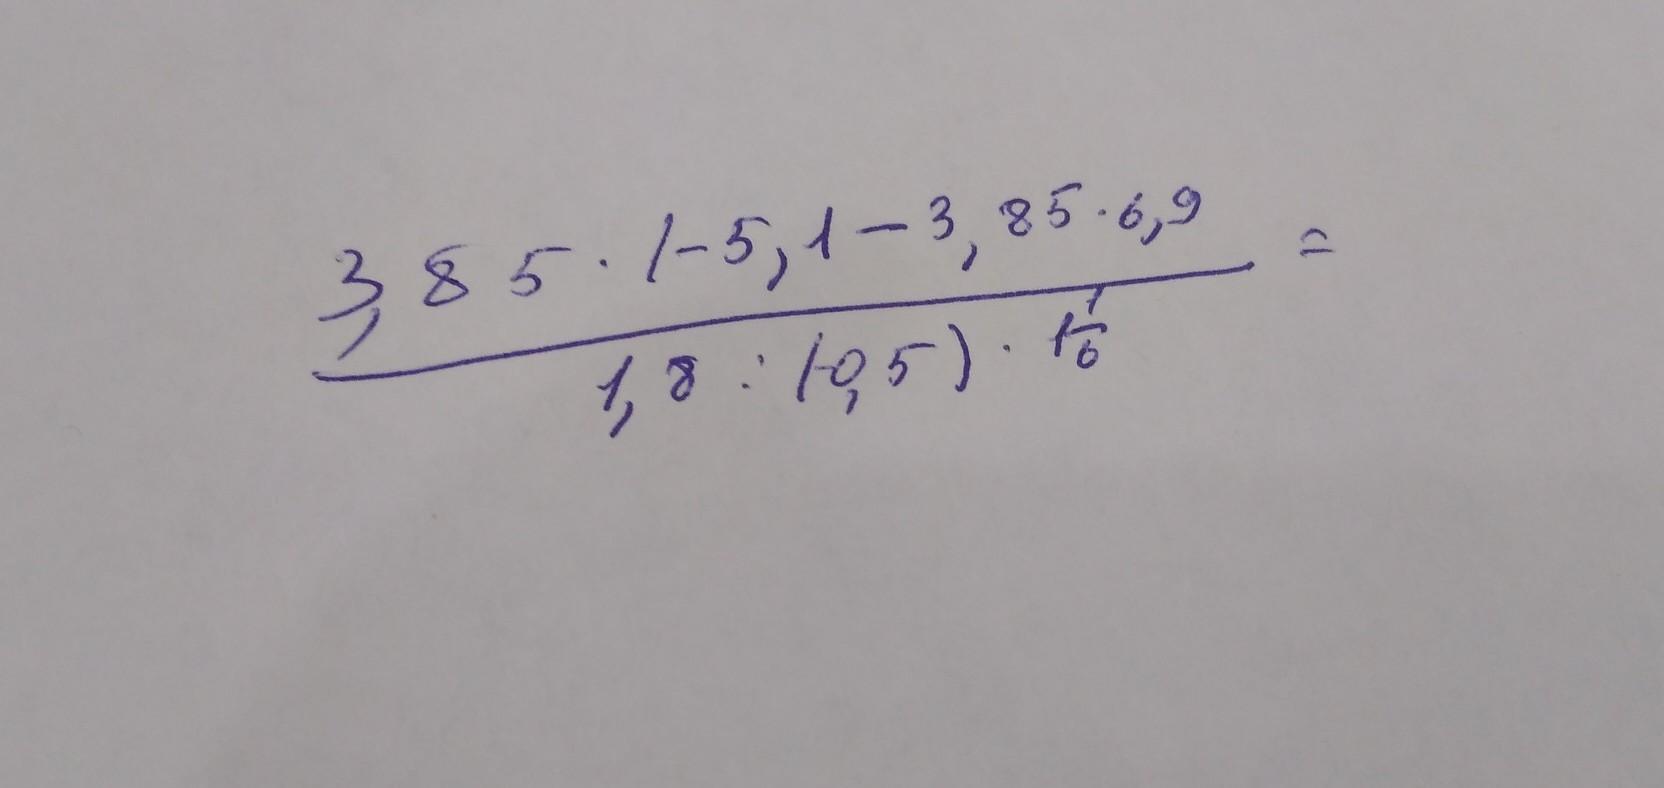 3,85 · (-5,1 - 3,85 · 6,9 =
1,8 : (-0,5) · 1 1/6